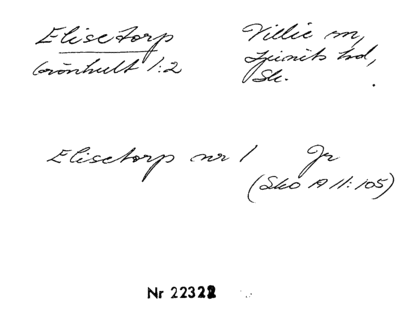 Elisetorp Villie sn,
Grönhult 1:2 Ljunits hd,
Sk.
Elisetorp nr 1 Jr
(Sko A II:105)
Nr 22322